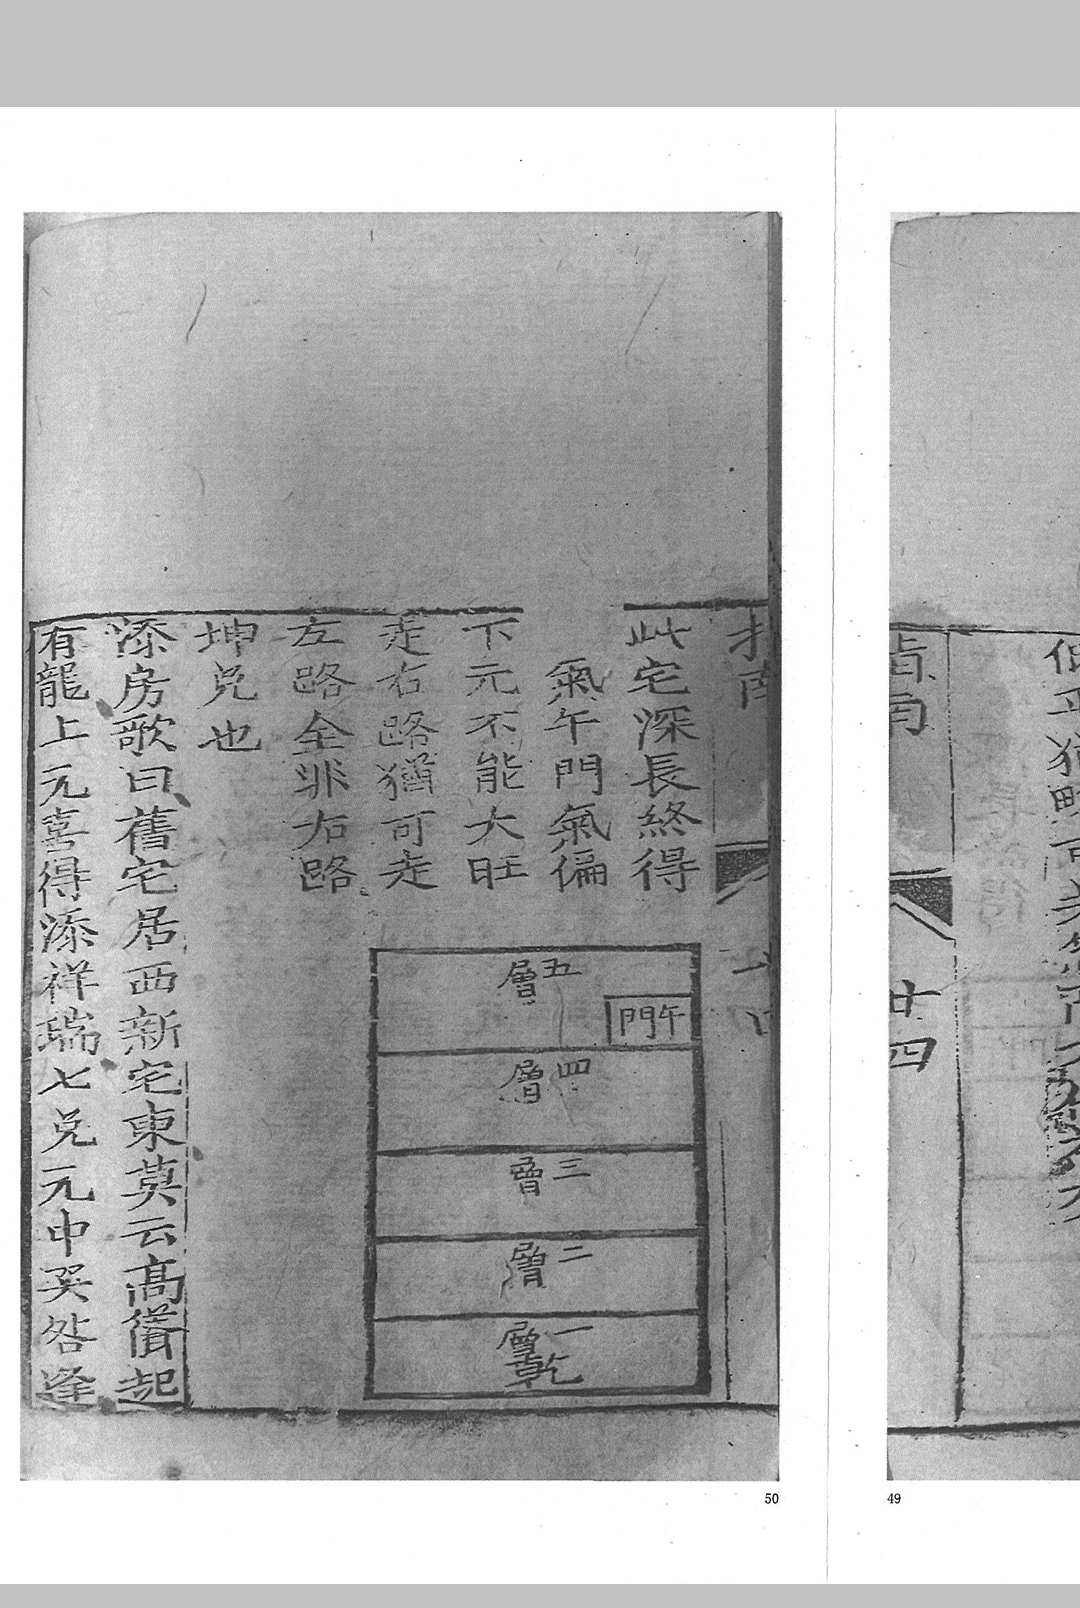 指南
廿四
49
指南
此宅深長終得
氣午門氣偏
下元不能大旺
走右路猶可走
左路全非右路
坤兌也
五層
午門
四層
三層
二層
一層
乾
添房歌曰舊宅居西新宅東莫云高起
有龍上元喜得添祥瑞七兌元中咎逢
50